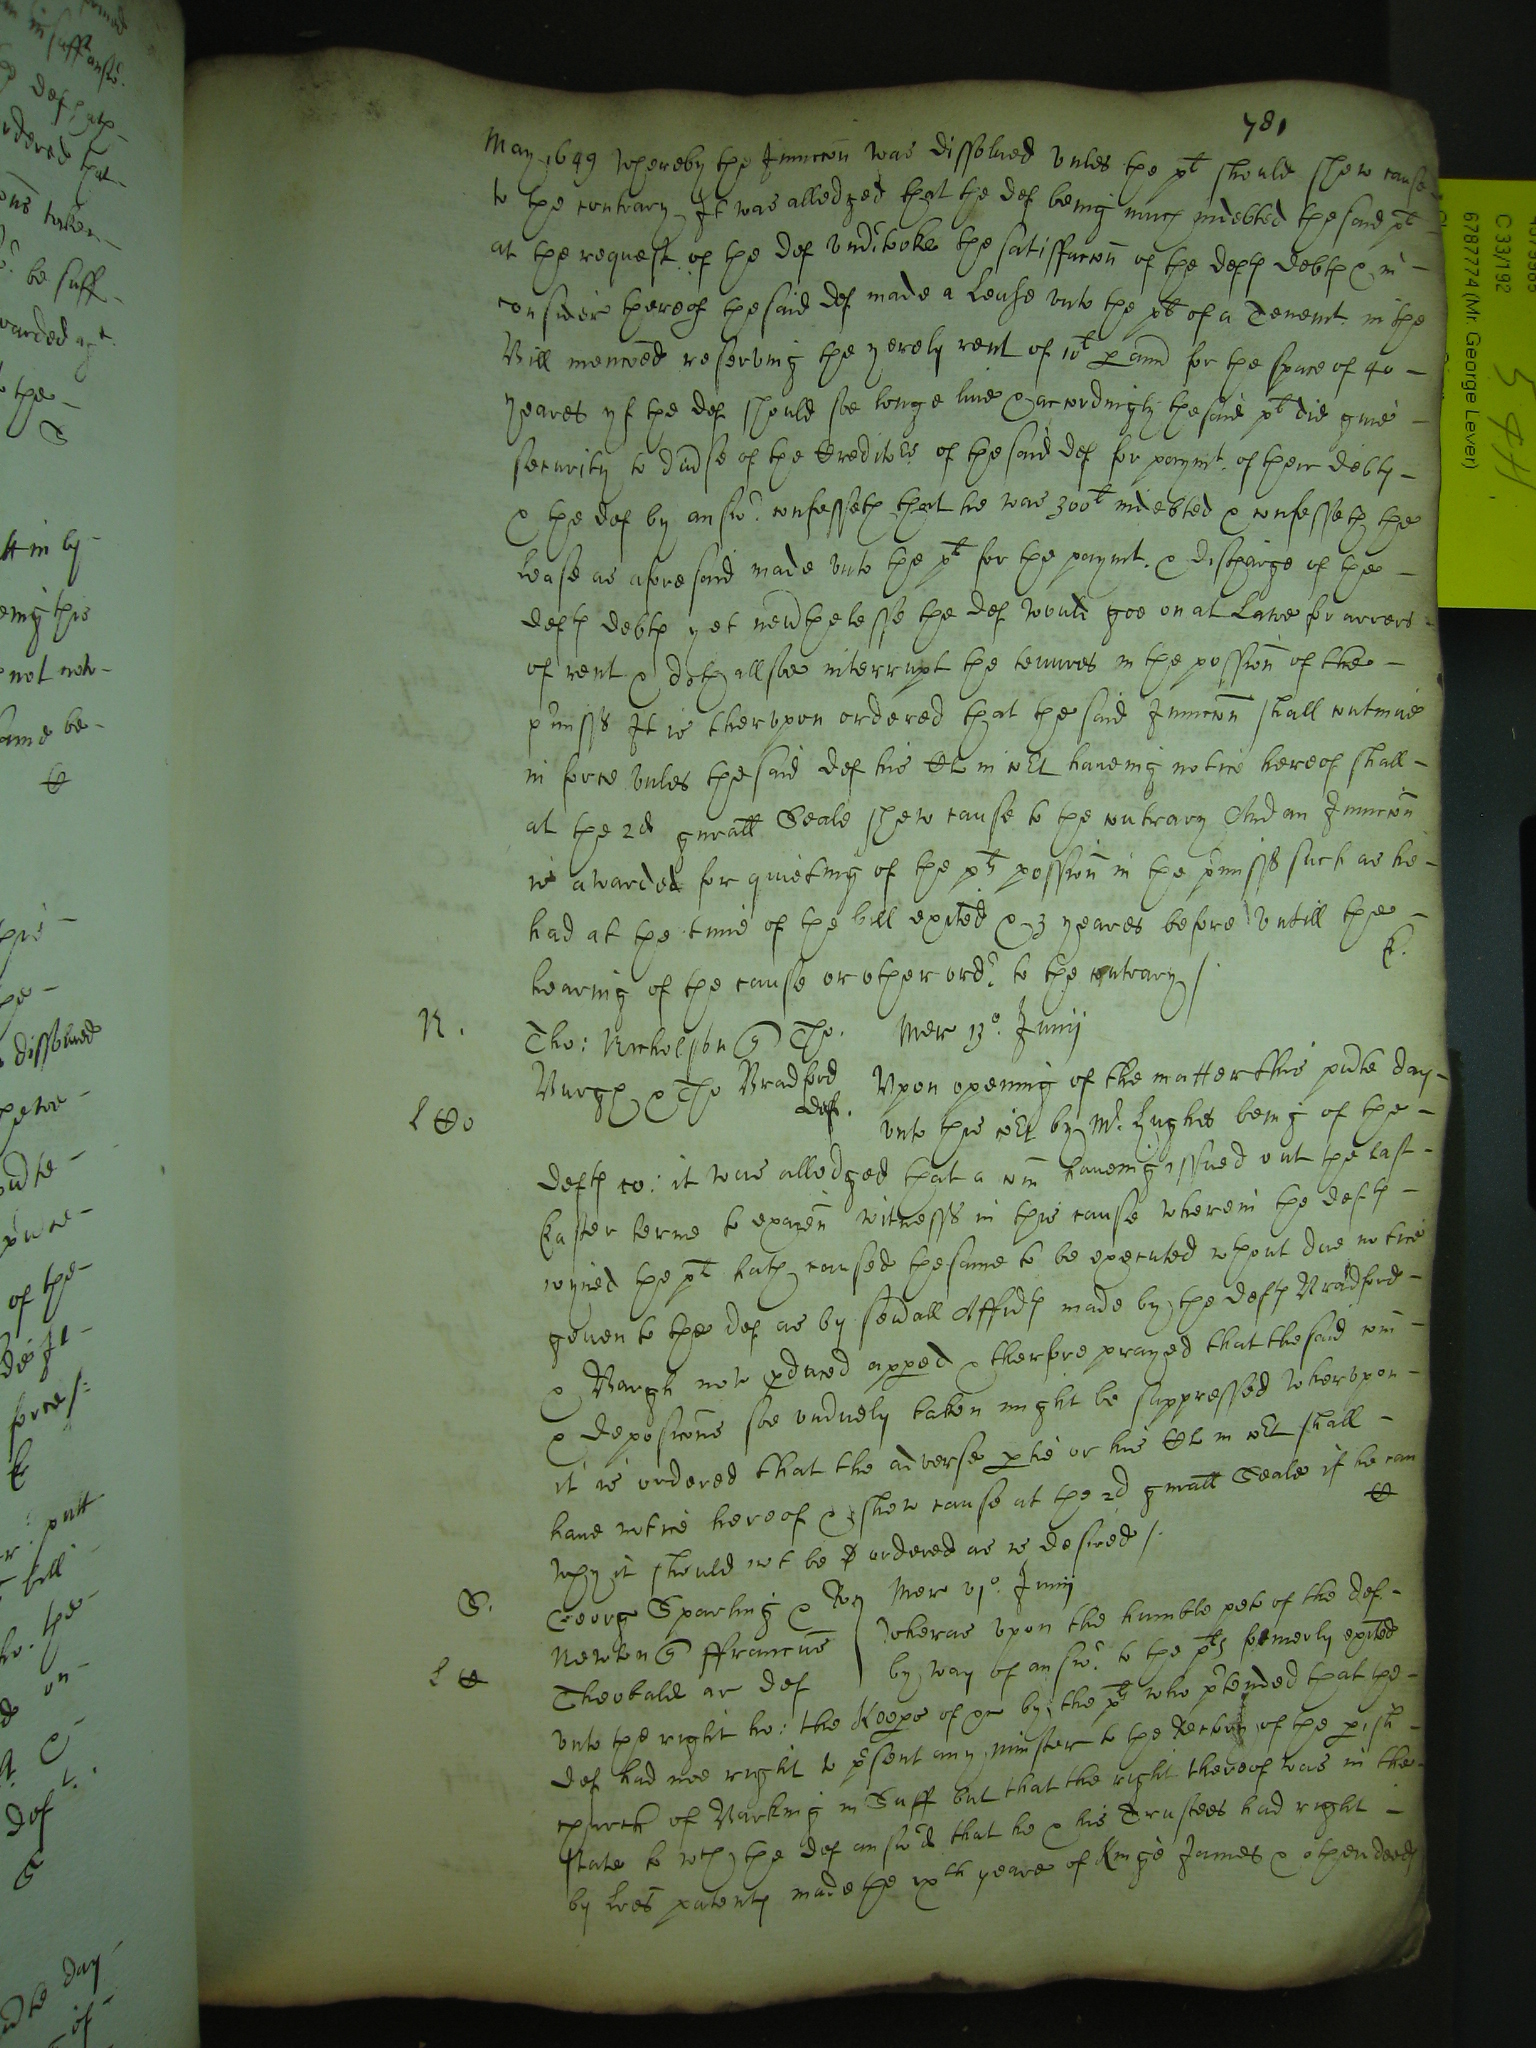 781
May 1649 whereby the Iniunccon was dissolved unles the plt should shew cause
to the contrary It was alledged that the def being much indebted the said plt
at the request of the def undertooke the satisfaccon of the defts debts & in
consider thereof the said def made a Lease unto the plt of a Tenemt. in the
Bill menconed reserving the yerely rent of 10l p ann for the space of 40
yeares yf the def should soe longe live & accordingly the said plt did give
security to of the Creditors of the said def for paymt. of their debts
& the def by answr. confesseth that he was 300l indebted & confesseth the
Lease as aforesaid made unto the plt for the paymt. & discharge of the
defts debts yet neverthelesse the def would goe on at Lawe for arrers
of rent & doth allsoe interrupt the tenures in the possion of the
pmisss It is therupon ordered that the said Iniunccon shall contynue
in force unles the said def his Cl in Cort haveing notice hereof shall
at the 2d gnrall Seale shew cause to the contrary And an Iniunccon
is awarded for quieting of the plts possion in the pmisss such as he
had at the time of the bill exited & 3 yeares before untill the
hearing of the cause or other ordr. to the contrary /
R.
N.
Tho: Nicholson Tho.
Burgh & Tho Bradford
def.
Mer 13o. Junij
L Co
Upon opening of the matter this pnte day
unto this Cort by Mr. Hughes being of the
defts co: it was alledged that a com haveing issued out the last
Easter terme to examn witnesss in this cause wherein the defts
ioyned the plt hath caused the same to be executed wthout due notice
given to the def as by sevall Affidts made by the defts Bradford
& Burgh now pduced apped & therfore prayed that the said com
& deposicons soe unduely taken might be suppressed wherupon
it is ordered that the adverse ptie or his Cl in Cort shall
have notice hereof & shew cause at the 2d gnrall Seale if he can
why it should not be ordered as is desired /.
S.
George Sparling & Roy
Newton Francis
Theobald ar def
Mer Junij
L
wheras upon the humble peto of the def
by way of answr. to the plts formerly exited
unto the right ho: the Keeps of &c by the plts who ptended that the
def had noe right to psent any minister to the Rectory of the pish
church of Barking in Suff but that the right thereof was in the
state to wch the def answrd that he & his Trustees had right
by Lres patents made the yeare of Kinge James & other deeds
C 33/192
6787774 (Mr. George Lever)